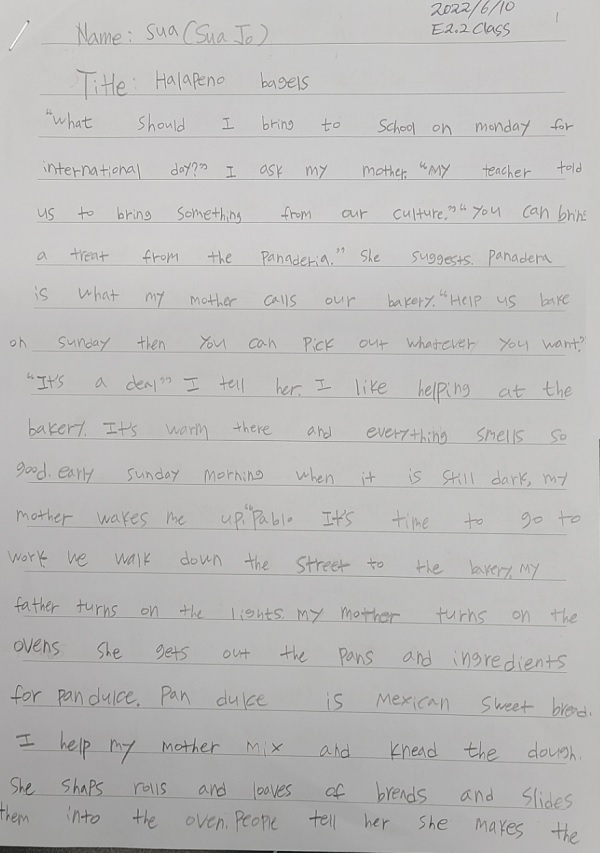 2022/6/10
E2.2 Class
1
Name: Sua (Sua Jo)
Title: Halapeno bagels
"What should I bring to School on monday for
international day?" I ask my mother. "My teacher told
us to bring something from our culture." "You can bring
a treat from the Panaderia." She suggests. Panadera
is what my mother calls our bakery. "Help us bake
on sunday then you can pick out whatever you want."
"It's a deal" I tell her. I like helping at the
bakery. It's warm there and everything smells so
good. early sunday morning when it is still dark, my
mother wakes me up. "Pablo It's time to go to
work. We walk down the street to the bakery. My
father turns on the lights. my mother turns on the
ovens she gets out the pans and ingredients
for pan dulce. Pan dulce is Mexican Sweet bread.
I help my mother mix and knead the dough.
She shaps rolls and loaves of breads and slides
them into the oven. People tell her she makes the